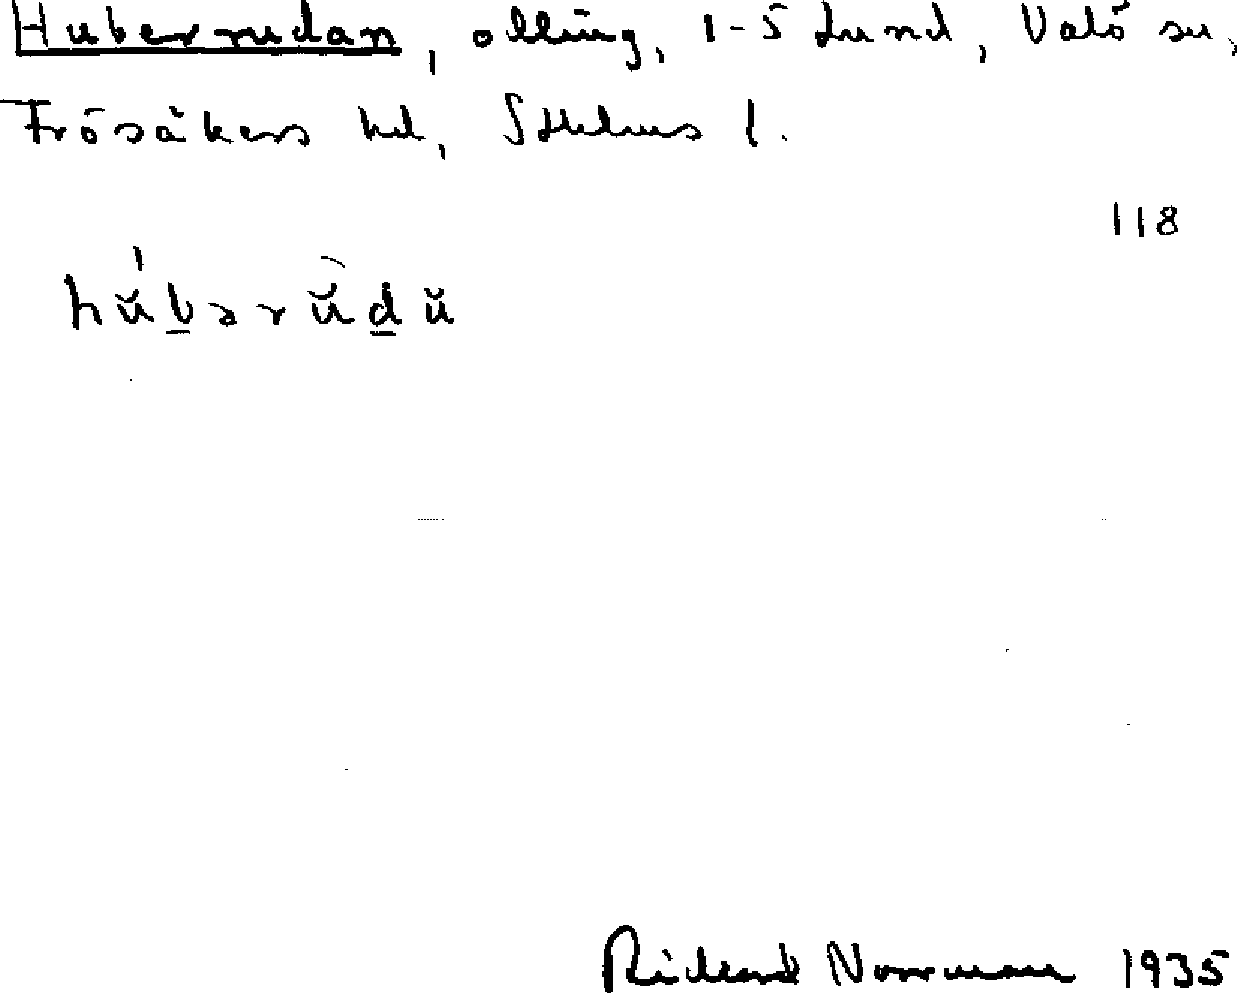 Huberrudan, olling, 1-5 Lund, Valö sn,
Frösåkers hd, Sthlms l.
118
hŭbərŭdŭ
Rickard Norrman 1935